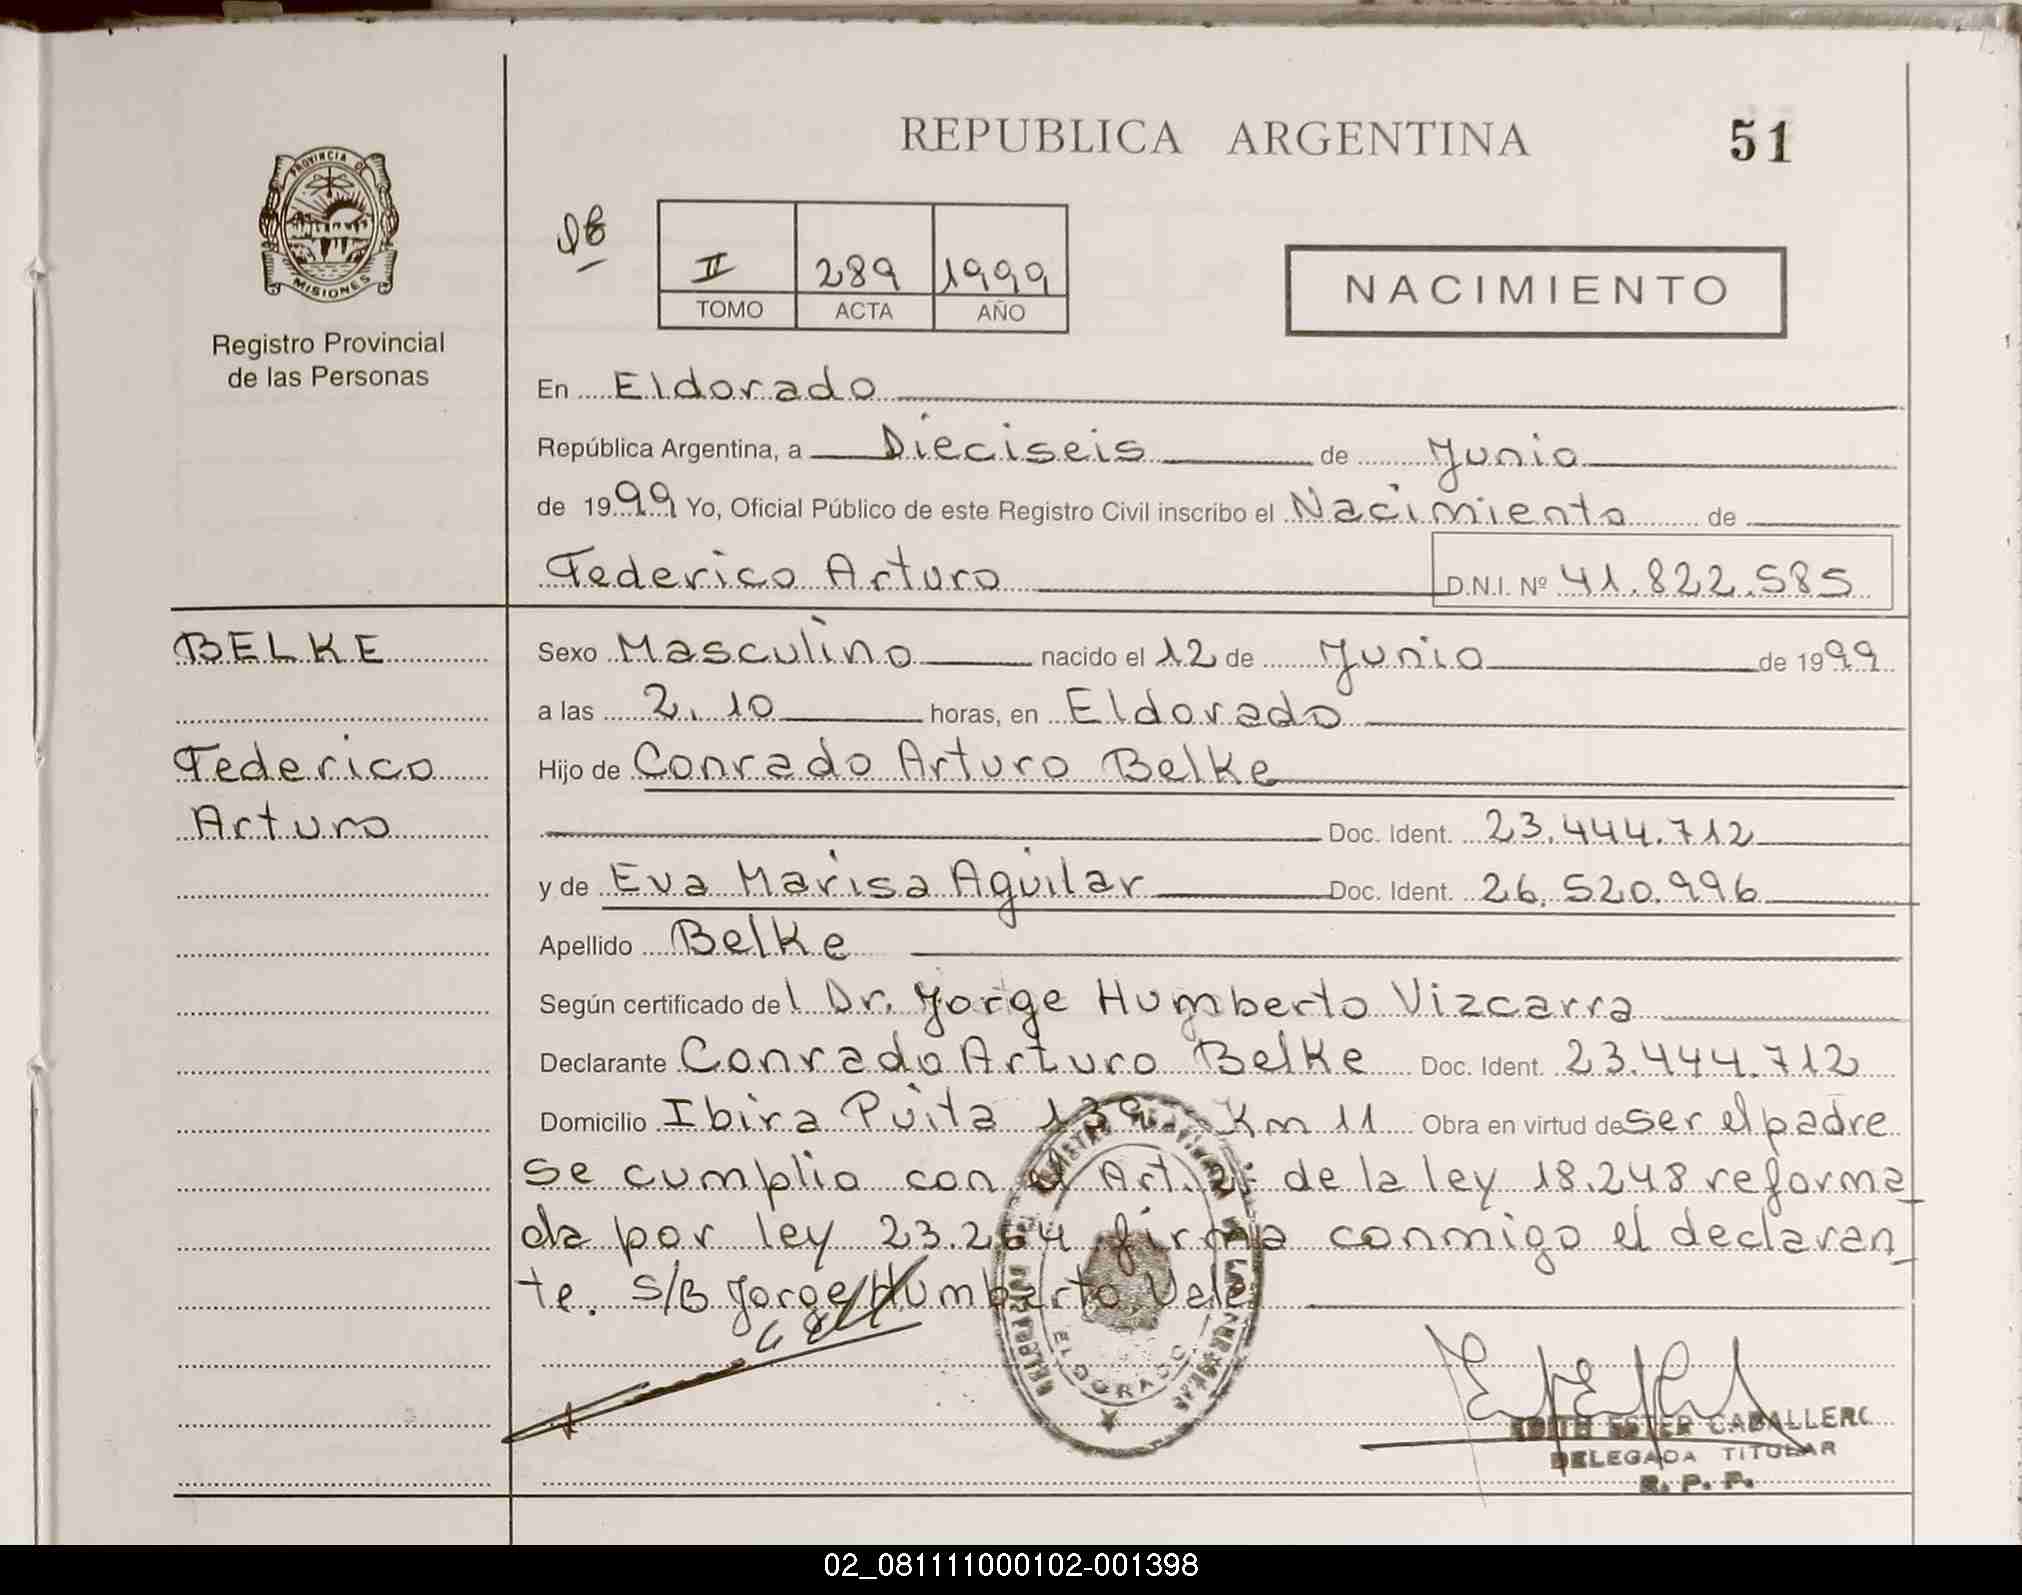 REPUBLICA ARGENTINA
51
PROVINCIA DE
MISIONES
Registro Provincial
de las Personas
II 289 1999
TOMO ACTA AÑO
NACIMIENTO
En Eldorado
República Argentina, a Dieciseis de Junio
de 1999 Yo, Oficial Público de este Registro Civil inscribo el Nacimiento de
Federico Arturo D.N.I. Nº 41.822.585
BELKE
Federico
Arturo
Sexo Masculino nacido el 12 de Junio de 1999
a las 2.10 horas, en Eldorado
Hijo de Conrado Arturo Belke
Doc. Ident. 23.444.712
y de Eva Marisa Aguilar Doc. Ident. 26.520.996
Apellido Belke
Según certificado del Dr. Jorge Humberto Vizcarra
Declarante Conrado Arturo Belke Doc. Ident. 23.444.712
Domicilio Ibira Puita 139 Km 11 Obra en virtud de ser el padre
se cumplio con el Art. de la ley 18.248 reforma
da por ley 23.264 firma conmigo el declaran
te. S/B Jorge Humberto Vale
ELDORADO
EDITH ESTER CABALLERO
DELEGADA TITULAR
R. P. P.
02_081111000102-001398